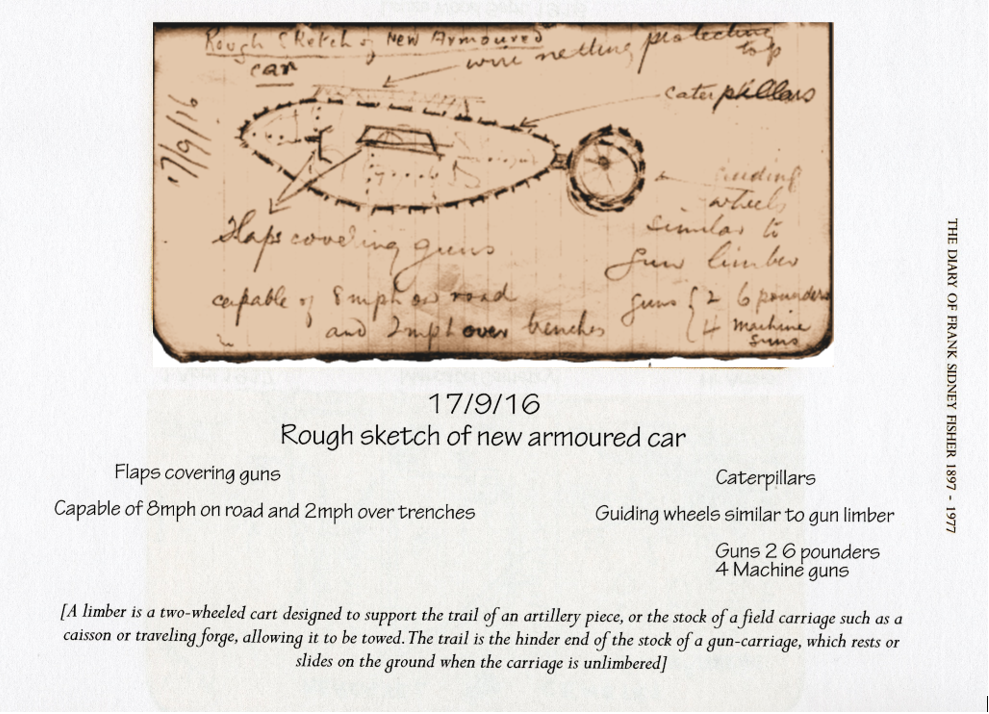 Rough Sketch of New Armoured
car
wire netting protecting
top
caterpillars
17/9/16
Guiding
wheels
similar to
Gun limber
Flaps covering guns
capable of 8 mph on road
and 2 mph over trenches
guns { 2 6 pounders
4 machine
guns
17/9/16
Rough sketch of new armoured car
Flaps covering guns
Caterpillars
Capable of 8mph on road and 2mph over trenches
Guiding wheels similar to gun limber
Guns 2 6 pounders
4 Machine guns
[A limber is a two-wheeled cart designed to support the trail of an artillery piece, or the stock of a field carriage such as a
caisson or traveling forge, allowing it to be towed. The trail is the hinder end of the stock of a gun-carriage, which rests or
slides on the ground when the carriage is unlimbered]
THE DIARY OF FRANK SIDNEY FISHER 1897 - 1977